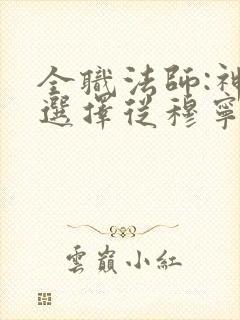 全職法師:神
選擇從穆寧
雲巔小紅